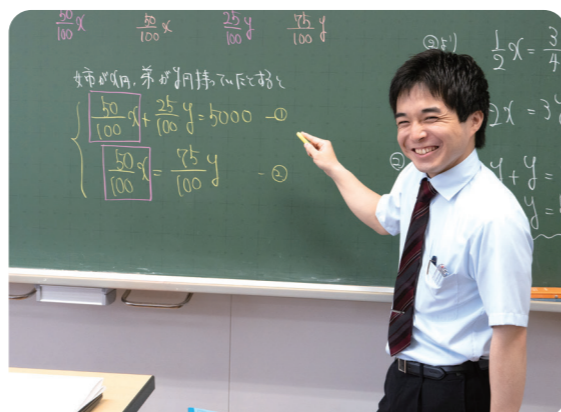 50/100 x 50/100 x 25/100 y 75/100 y
姉がx円、弟がy円持っていたとすると
50/100 x + 25/100 y = 5000 —①
50/100 x = 75/100 y —②
②より
1/2 x = 3/4
2x = 3y
y + y =
y =